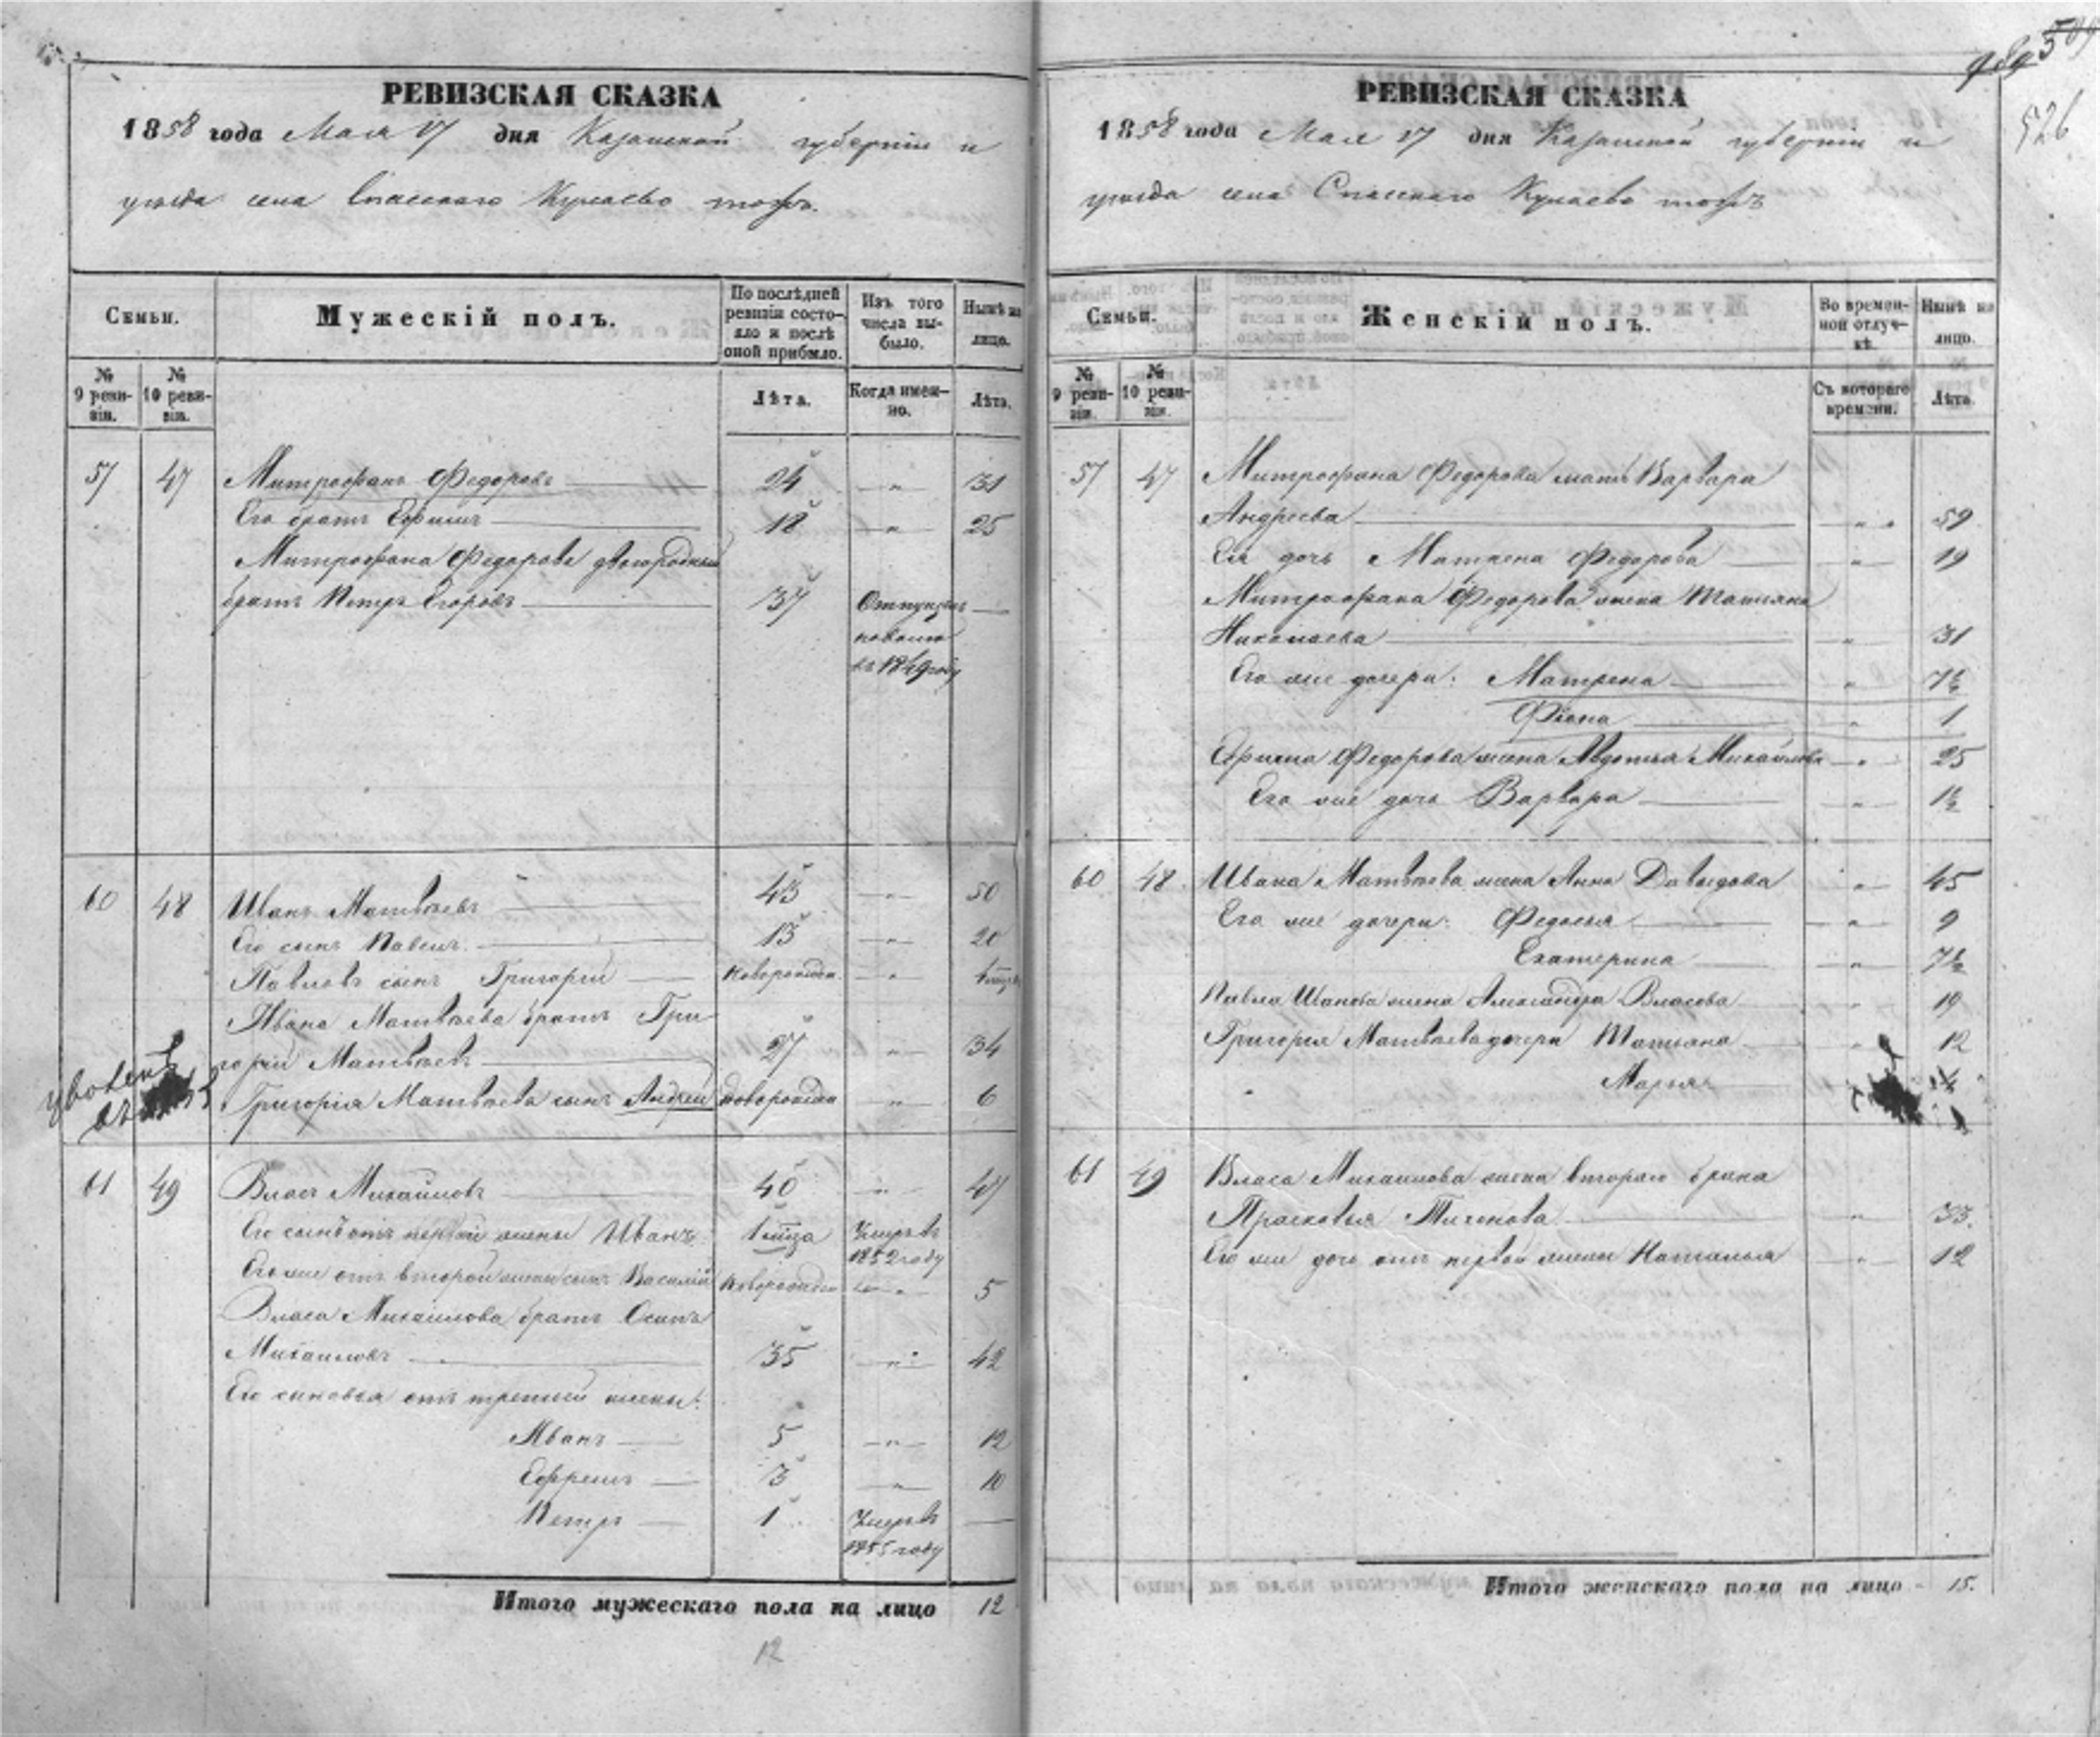 РЕВИЗСКАЯ СКАЗКА
1858 года Мая 17 дня Казанской губернии и
уезда села Спасского Кулаево тожъ.
Семьи.
Мужескій полъ.
По послѣдней ревизіи состояло и послѣ оной прибыло.
Изъ того числа выбыло.
Нынѣ на лицо.
№ 9 ревизіи.
№ 10 ревизіи.
Лѣта.
Когда именно.
Лѣта.
57 47 Митрофанъ Федоровъ 24 " 31
Его братъ Ефимъ 18 " 25
Митрофана Федорова двоюродный
братъ Петръ Егоровъ 37 Отпущенъ
на волю
въ 1849 году
60 48 Иванъ Матвѣевъ 43 " 50
Его сынъ Павелъ 13 " 20
Павловъ сынъ Григорій новорожден. "
Ивана Матвѣева братъ Гри-
горій Матвѣевъ 27 " 34
Григорія Матвѣева сынъ Андрей новорожден " 6
61 49 Власъ Михайловъ 40 " 47
Его сынъ отъ первой жены Иванъ 1 мѣса Умеръ въ
1852 году
Его же отъ второй жены сынъ Василій новорожден " 5
Власа Михайлова братъ Осипъ
Михайловъ 35 " 42
Его сыновья отъ третьей жены:
Иванъ 5 " 12
Ефремъ 3 " 10
Петръ 1 Умеръ въ
1855 году
Итого мужескаго пола на лицо 12
12
526
РЕВИЗСКАЯ СКАЗКА
1858 года Мая 17 дня Казанской губерніи и
уезда села Спасского Кулаево тожъ
Семьи.
Женскій полъ.
Во временной отлучкѣ.
Нынѣ на лицо.
№ 9 ревизіи.
№ 10 ревизіи.
Съ котораго времени.
Лѣта.
57 47 Митрофана Федорова мать Варвара
Андреева " 59
Ея дочь Матрена Федорова " 19
Митрофана Федорова жена Татьяна
Николаева " 31
Его же дочери: Матрена " 7½
Фіона " 1
Ефима Федорова жена Авдотья Михайлова " 25
Его же дочь Варвара " 1½
60 48 Ивана Матвѣева жена Анна Давыдова " 45
Его же дочери: Федосья " 9
Екатерина " 7½
Павла Иванова жена Александра Власова " 19
Григорія Матвѣева дочери Татьяна " 12
Марья
61 49 Власа Михайлова жена втораго брака
Прасковья " 33.
Его же дочь отъ первой жены Наталья " 12
Итого женскаго пола на лицо 15.